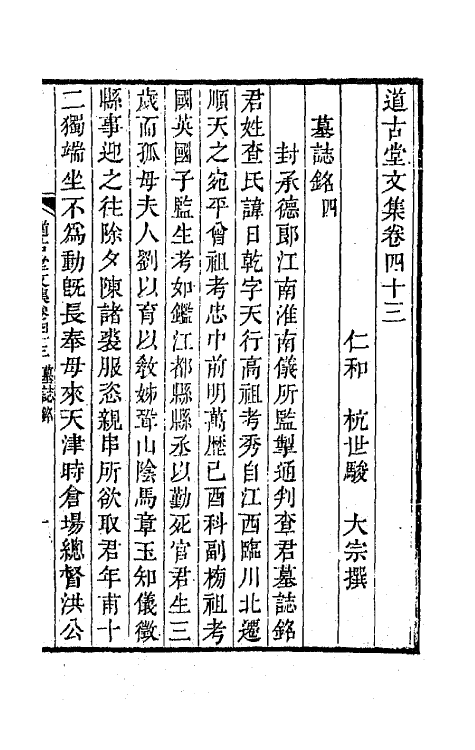 道古堂文集卷四十三
仁和 杭世駿 大宗撰
墓誌銘四
封承德郎江南淮南儀所監掣通判查君墓誌銘
君姓查氏諱日乾字天行高祖考秀自江西臨川北遷
順天之宛平曾祖考忠中前明萬歷己酉科副榜祖考
國英國子監生考如鑑江都縣縣丞以勤死官君生三
歲而孤母夫人劉以育以敎姊壻山陰馬章玉知儀徵
縣事迎之往除夕陳諸裘服恣親串所欲取君年甫十
二獨端坐不爲動旣長奉母來天津時倉場總督洪公
道古堂文集卷四十三 墓誌銘 一